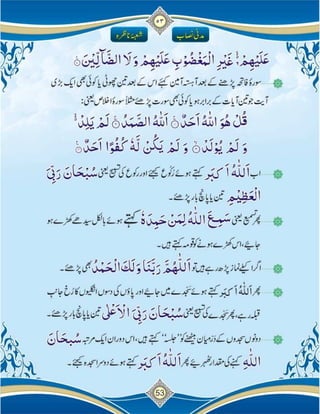 مدنی نصاب
۵۳
شعبۂ ناظرہ
عَلَيْهِمْ ۙ غَيْرِ الْمَغْضُوْبِ عَلَيْهِمْ وَلَا الضَّآلِّيْنَ ۞
سورۂ فاتحہ پڑھنے کے بعد آہستہ آمین کہئے اس کے بعد تین چھوٹی یا کوئی بھی ایک بڑی
آیت جو تین آیات کے برابر ہو یا کوئی بھی سورت پڑھئے مثلاً سورۂ اخلاص یعنی:
قُلْ هُوَ اللّٰهُ اَحَدٌ ۞ اَللّٰهُ الصَّمَدُ ۞ لَمْ يَلِدْ ۙ
وَ لَمْ يُوْلَدْ ۞ وَ لَمْ يَكُنْ لَّهٗ كُفُوًا اَحَدٌ ۞
اب اَللّٰهُ اَكْبَر کہتے ہوئے رُکوع کیجئے اور رکوع کی تسبیح یعنی سُبْحَانَ رَبِّیَ
الْعَظِيْمِ تین یا پانچ بار پڑھئے۔
پھر تسمیع یعنی سَمِعَ اللّٰهُ لِمَنْ حَمِدَهٗ کہتے ہوئے بالکل سیدھے کھڑے ہو
جائیے، اس کھڑے ہونے کو قومہ کہتے ہیں۔
اگر اکیلے نماز پڑھ رہے ہیں تو اَللّٰهُمَّ رَبَّنَا وَلَكَ الْحَمْدُ بھی پڑھئے۔
پھر اَللّٰهُ اَكْبَر کہتے ہوئے سجدے میں جائیے اور پاؤں کی دسوں انگلیوں کا رخ جانبِ
قبلہ رہے، پھر سجدے کی تسبیح یعنی سُبْحَانَ رَبِّیَ الْاَعْلٰی تین یا پانچ بار پڑھئے۔
دونوں سجدوں کے درمیان بیٹھنے کو "جلسہ" کہتے ہیں، اس دوران ایک مرتبہ سُبْحَانَ
اللّٰهِ کہنے کی مقدار ٹھہریئے پھر اَللّٰهُ اَكْبَر کہتے ہوئے دوسرا سجدہ کیجئے۔
53